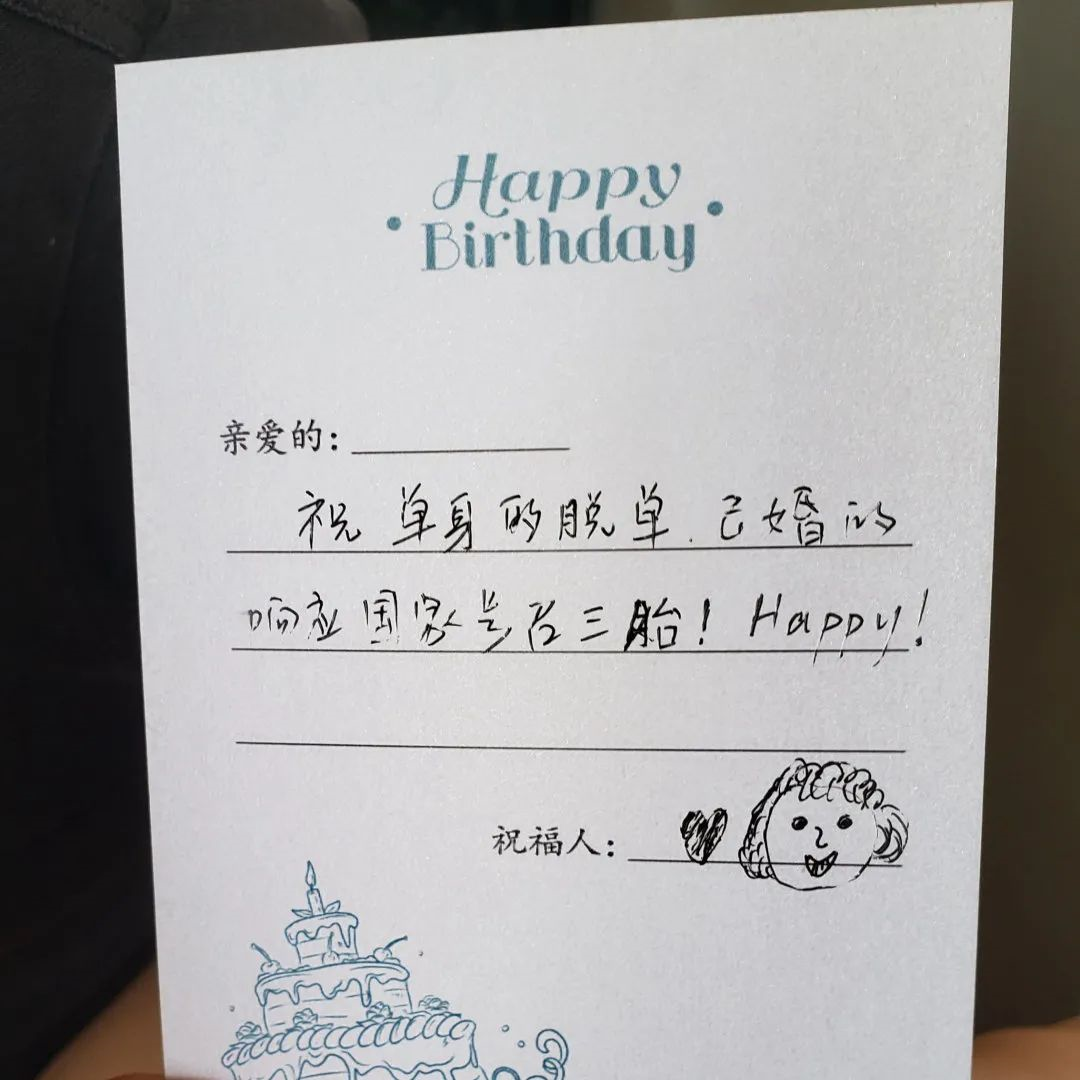 Happy
Birthday
亲爱的:
祝单身的脱单.已婚的
响应国家号召三胎! Happy!
祝福人: